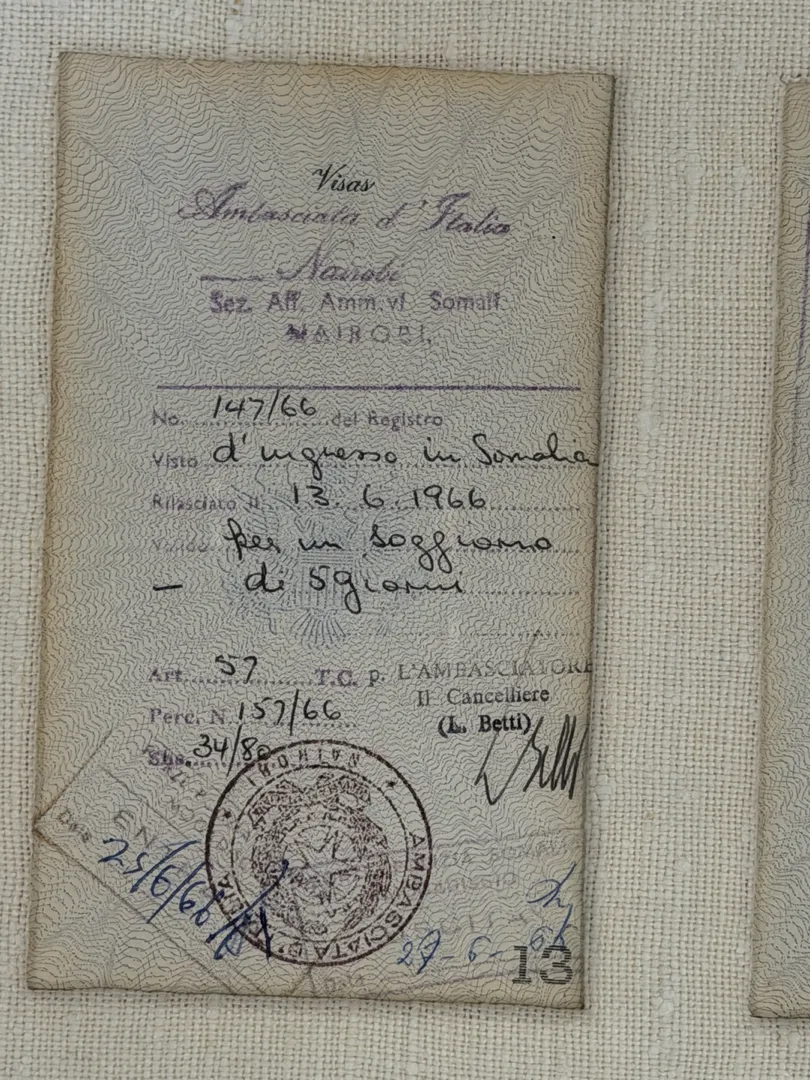 Visas
Ambasciata d'Italia
Nairobi
Sez. Aff. Amm.vi Somali
NAIROBI,
No. 147/66 del Registro
Visto d'ingresso in Somalia
Rilasciato il 13.6.1966
Valido per un soggiorno
— di 5 giorni
Art. 57 T.C. p. L'AMBASCIATORE
Perc. N. 157/66 Il Cancelliere
(L. Betti)
Sho. 34/80
NAIROBI
AMBASCIATA D'ITALIA
Date
25/6/66
27-6-66
Date
13